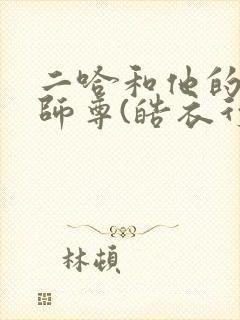 二哈和他的
師尊(皓衣行
林頓